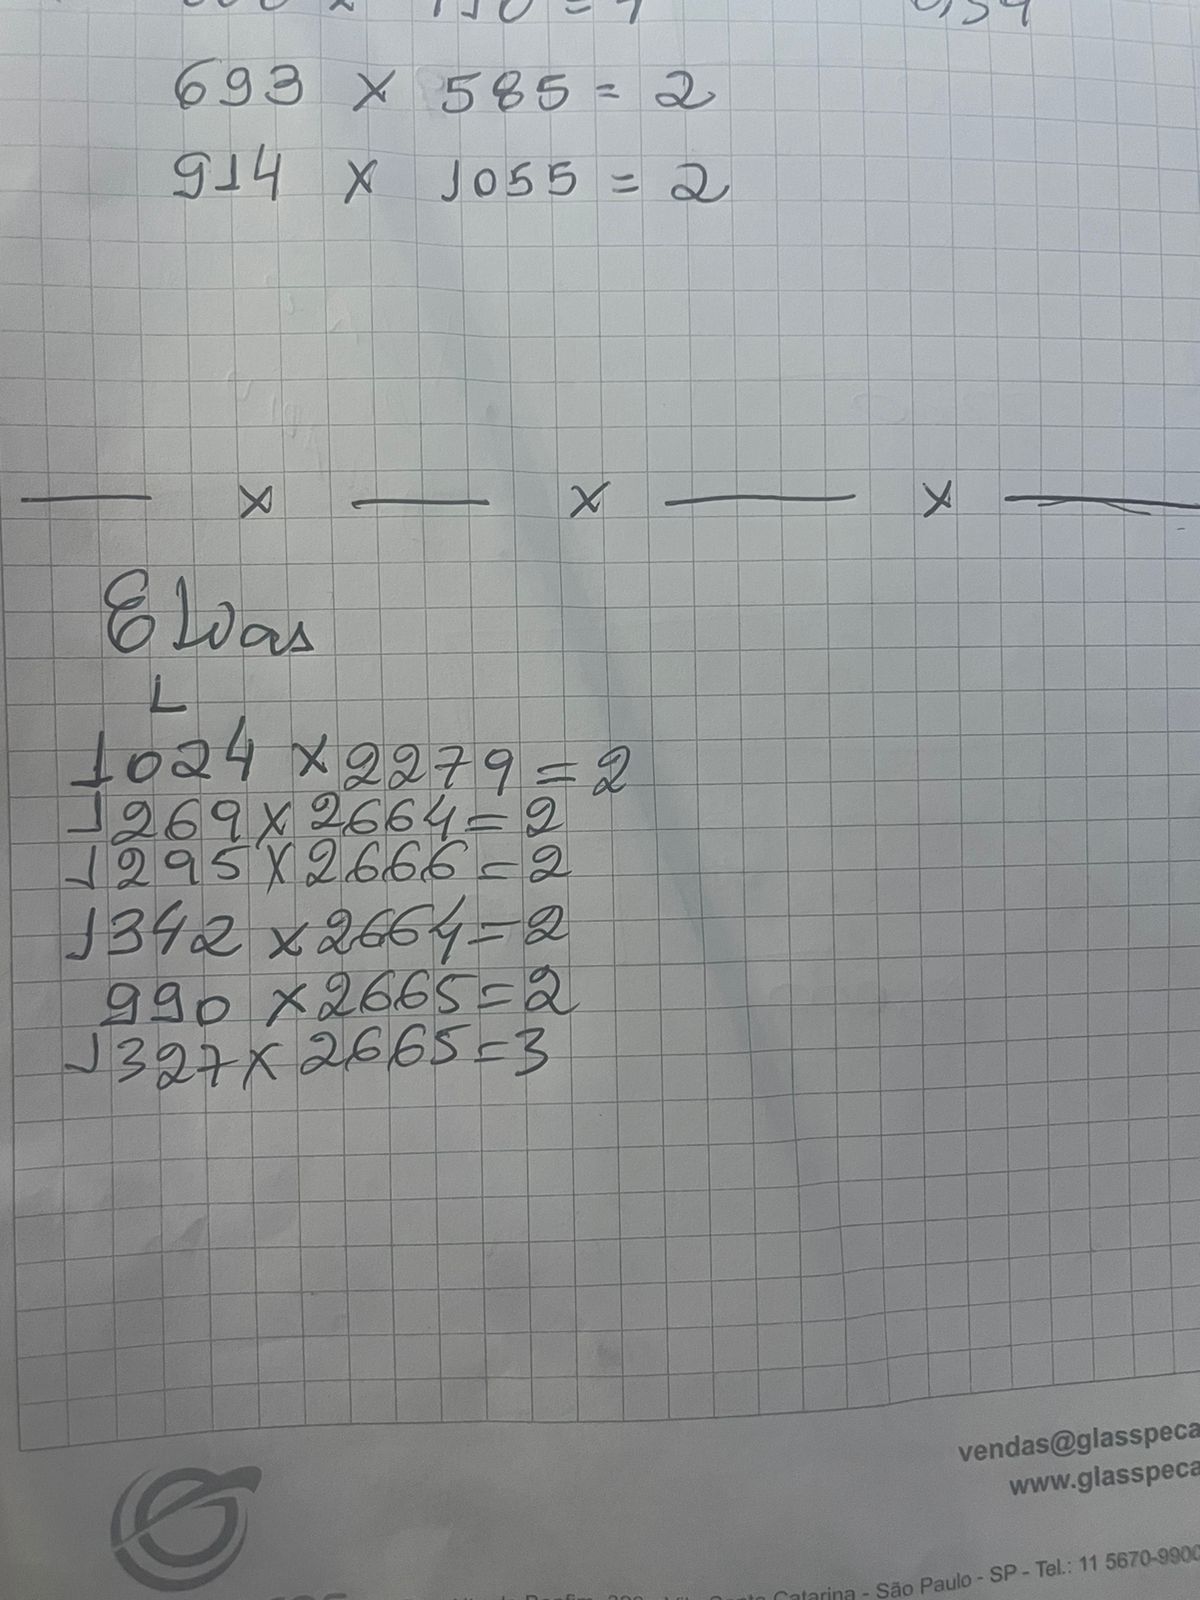 693 x 585 = 2
914 x 1055 = 2
x x x
Elvas
L
1024 x 2279 = 2
1269 x 2664 = 2
1295 x 2666 = 2
1342 x 2664 = 2
990 x 2665 = 2
1327 x 2665 = 3
vendas@glasspeca
www.glasspeca
Catarina - São Paulo - SP - Tel.: 11 5670-9900